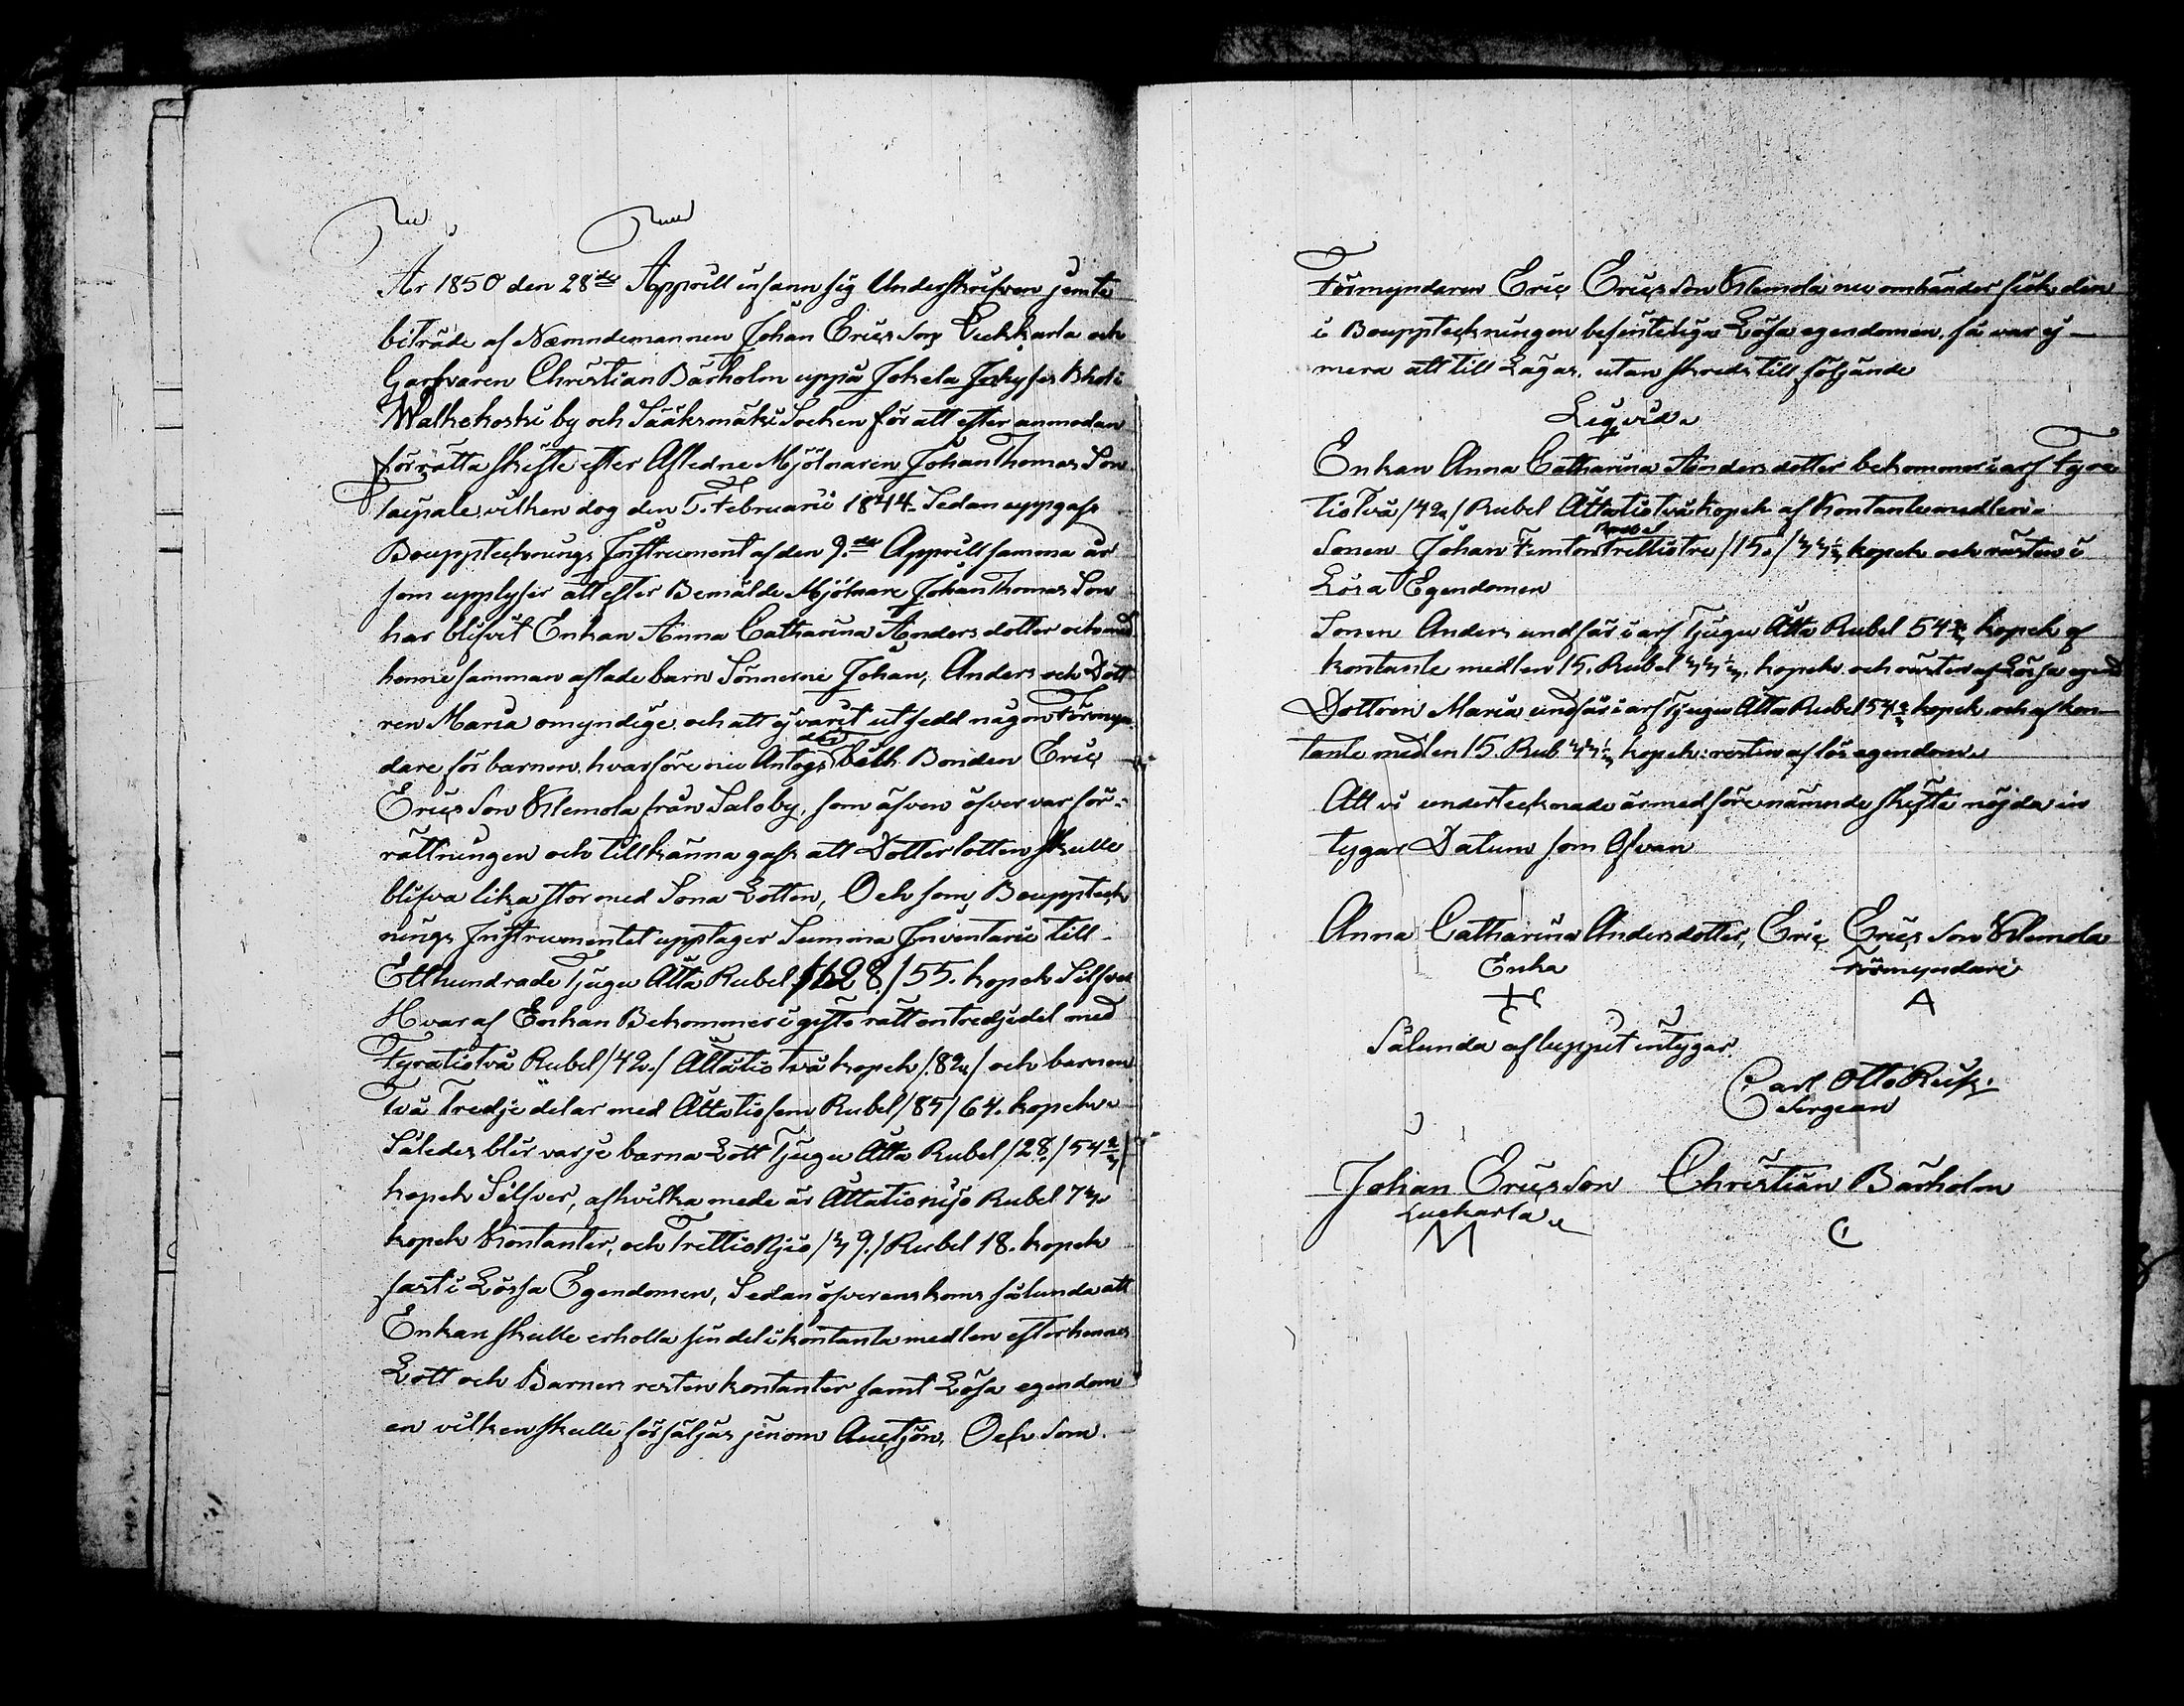 År 1850 den 28de Apprill infann sig Underskrifven jemte
biträde af Næmndemannen Johan Ericsson Luckkarla och
Garfvaren Christian Bärholm uppå Jokela
Walkekoski by och Sääksmäki Socken för att efter anmodan
förrätta skifte efter Afledne Mjölnaren Johan Thomas Son
Taipale, vilken dog den 5. Februarii 1844. Sedan uppgafs
Bouppteckning Instrument af den 9.de Apprill samma år
som upplyser att efter Bemälde Mjölnare Johan Thomas Son
har blifvit Enkan Anna Catharina Anders dotter och med
henne samman aflade barn Sönnerne Johan, Anders och Dott
ren Maria omyndige och att ej varit utsedd någon Förmyn
dare för barnen, hvarföre nu Antogs Bonden Eric
Ericsson Klemola från Saloby, som äfven öfvervar för-
rättningen och tillkänna gafs att Dotterlotten skulle
blifva lika stor med Sona Lotten, Och som Bouppteck
nings Instrumentet upptager Summa Inventarie till
Etthundrade Tjugu Åtta Rubel /128./ 55. kopek Silfver
Hvaraf Enkan Bekommer i gifto rätt en tredjedel med
Fyratiotvå Rubel /42./ Åttatio två kopek /82/ och barnen
Två Tredje delar med Åttatiofem Rubel /85/ 64. kopek
Således blir varje barna Lott Tjugu Åtta Rubel /28./ 54 2/3/
kopek Silfver, afhvilka mede är Åttationijo Rubel 73
kopek Kontanter, och Trettio Njio /39./ Rubel 18. kopek
fast i Lössa Egendomen, Sedan öfverenskoms sålunda att
Enkan skulle erholla sin del i kontanta medlen efter hennes
Lott och Barnen resten kontanter samt Lösa egendom
en vilken skulle försäljas jenom Auctjon, Och som
Förmyndaren Eric Ericsson Klemola nu omhänder fick den
i Bouppteckningen befinteliga Lösa egendomen, så var ej
mera att till Lägas, utan skreds till följande
Liqvid
Enkan Anna Catharina Anders dotter bekommer i arf Fyra
tiotvå /42/ Rubel Åttatiotvå kopek af Kontante medlen
Sonen Johan Femton Rubel trettiotre /15./ 33 1/3 kopek och resten i
Lösa Egendomen
Sonen Anders undfår i arf Tjugu Åtta Rubel 54 2/3 kopek af
kontante medlen 15. Rubel 33 1/3 kopek och resten af Lösa egend
Dottren Maria undfår i arf Tjugu Åtta Rubel 54 2/3 kopek och af kon-
tante medlen 15. Rub 33 1/3 kopek: resten af lös egendom
Att vi undertecknade är med förenämnde skifte nöjda in
tygar Datum som Ofvan
Anna Catharina Andersdotter, Eric Ericsson Klemola
Enka Förmyndare
Sålunda afluppit intygar
Carl Otto Rusk.
Sergean
Johan Ericsson Christian Bärholm
Luckarla